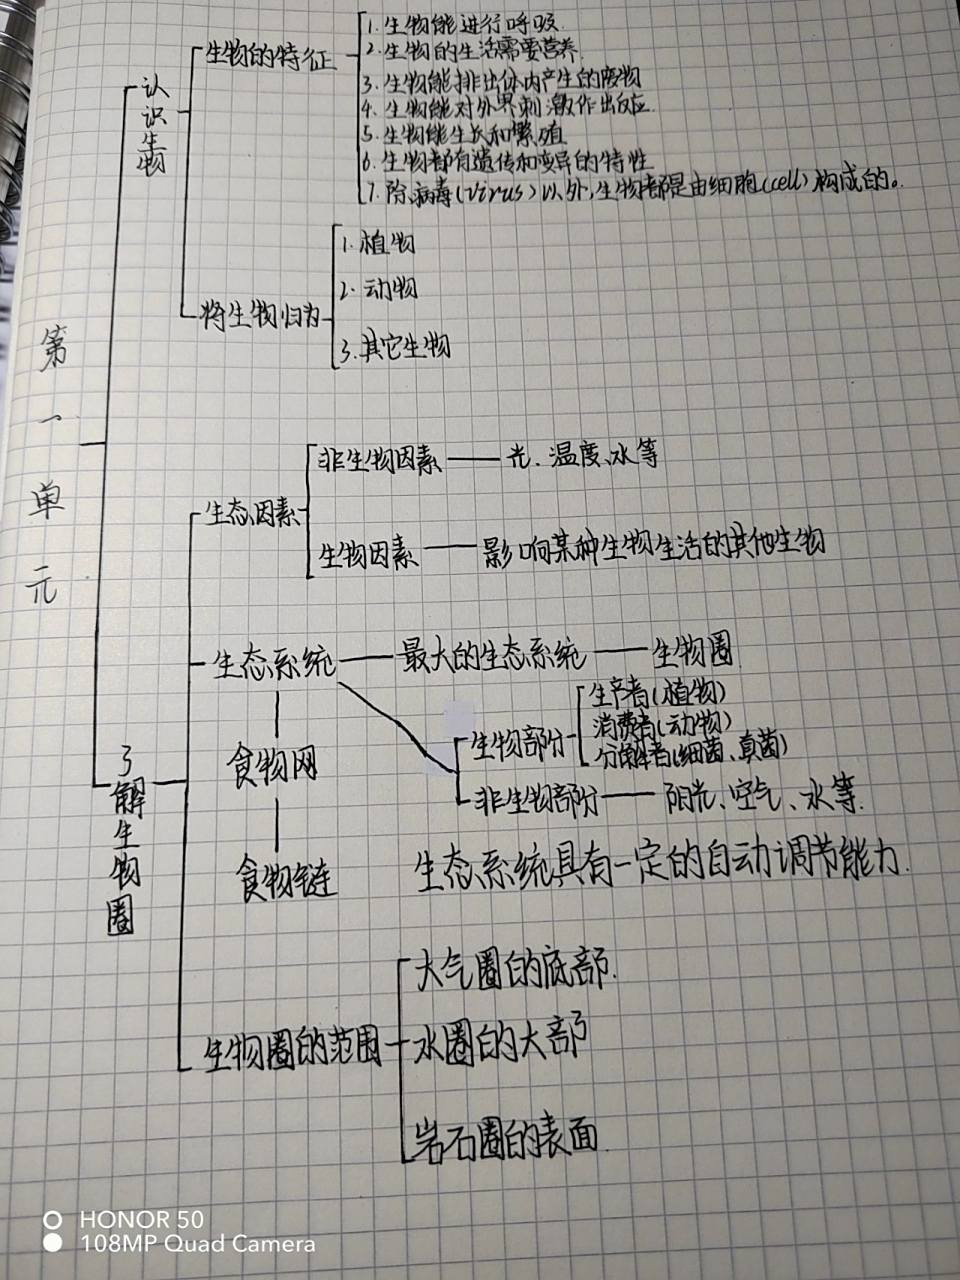 第一单元
认识生物
生物的特征
1.生物能进行呼吸.
2.生物的生活需要营养.
3.生物能排出体内产生的废物
4.生物能对外界刺激作出反应.
5.生物能生长和繁殖
6.生物都有遗传和变异的特性
7.除病毒(virus)以外,生物都是由细胞(cell)构成的。
将生物归为
1.植物
2.动物
3.其它生物
了解生物圈
生态因素
非生物因素——光、温度、水等
生物因素——影响某种生物生活的其他生物
生态系统——最大的生态系统——生物圈
生物部分
生产者(植物)
消费者(动物)
分解者(细菌、真菌)
非生物部分——阳光、空气、水等.
食物网
食物链
生态系统具有一定的自动调节能力.
生物圈的范围
大气圈的底部.
水圈的大部
岩石圈的表面.
HONOR 50
108MP Quad Camera